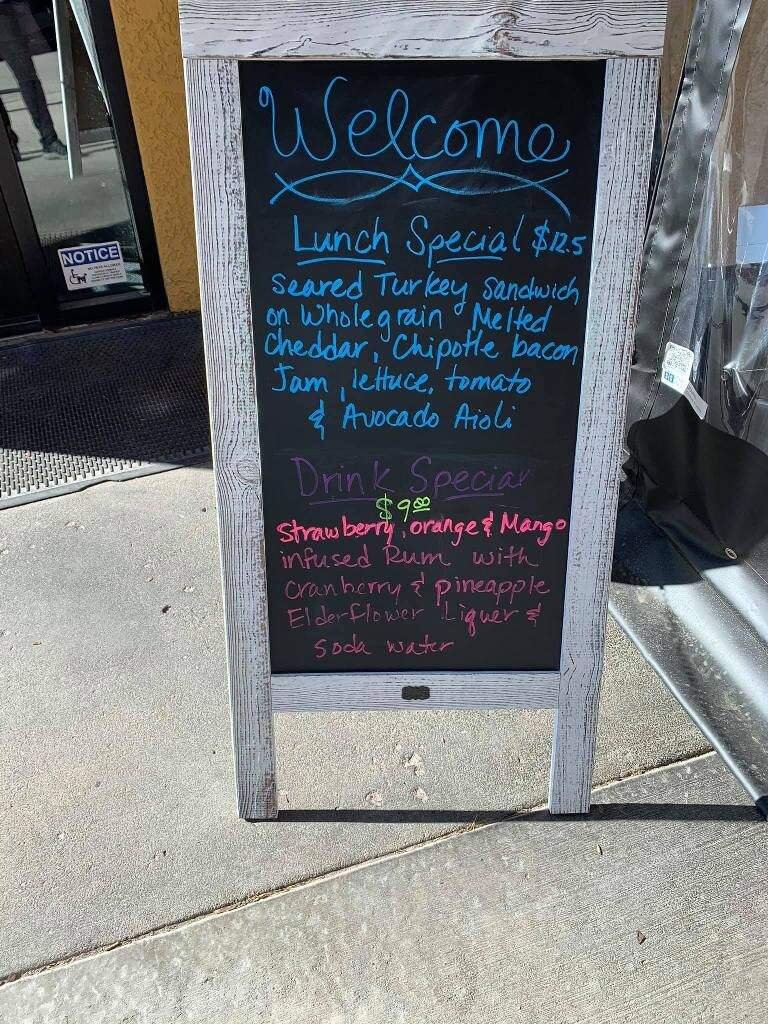 Welcome
Lunch Special $12.5
seared Turkey sandwich
on whole grain Melted
cheddar, Chipotle bacon
Jam, lettuce, tomato
& Avocado Aioli
Drink Special
$9.00
Strawberry, orange & Mango
infused Rum with
cranberry & pineapple
Elderflower Liquer &
soda water
NOTICE